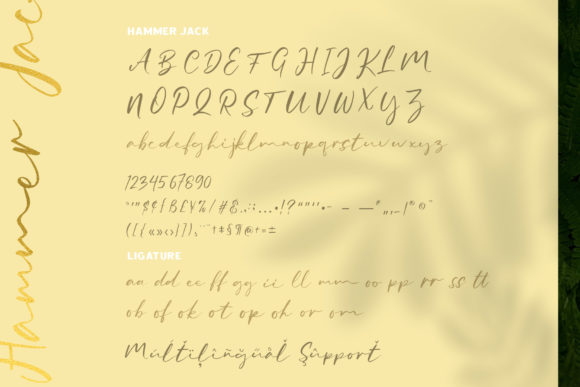 Hammer Jac
HAMMER JACK
A B C D E F G H I J K L M
N O P Q R S T U V W X Y Z
abcdefghijklmnopqrstuvwxyz
1234567890
LIGATURE
aa dd ee ff gg ii ll mm oo pp rr ss tt
ob of ok ot op oh or om
Múltïļîñğüåł Şûppořt